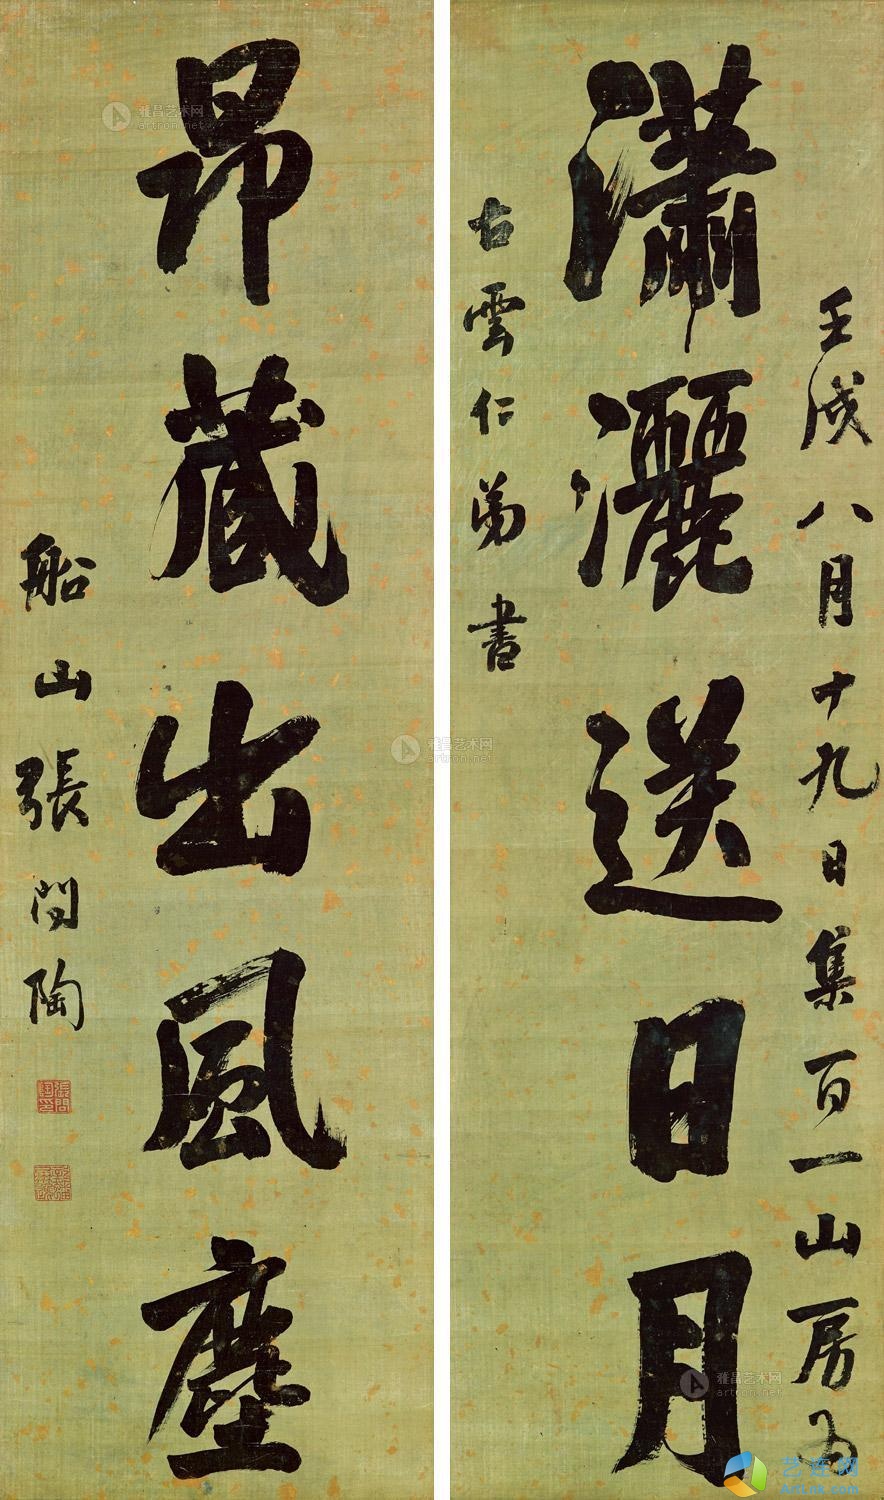 壬戌八月十九日集百一山房为
瀟灑送日月
古雲仁弟書
昂藏出風塵
船山張問陶
張問陶印
雅昌艺术网
artron.net
雅昌艺术网
artron.net
雅昌艺术网
artron.net